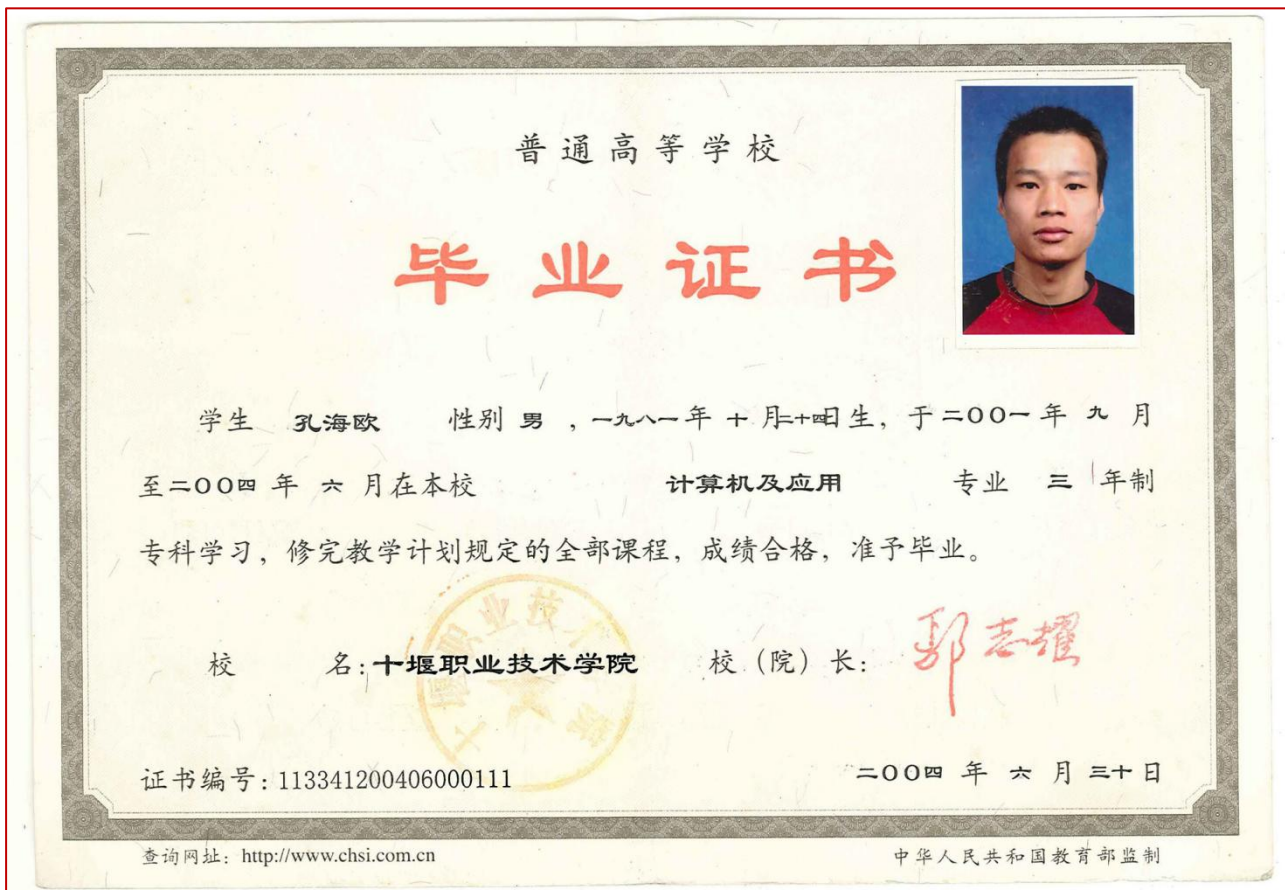 普通高等学校
毕业证书
学生 孔海欧 性别 男 ,一九八一年 十 月二十四日生, 于二〇〇一年 九 月
至二〇〇四 年 六 月在本校 计算机及应用 专业 三 年制
专科学习, 修完教学计划规定的全部课程, 成绩合格, 准予毕业。
校 名: 十堰职业技术学院 校 (院) 长: 郭志耀
十堰职业技术学院
证书编号: 113341200406000111 二〇〇四 年 六 月 三十日
查询网址: http://www.chsi.com.cn 中华人民共和国教育部监制